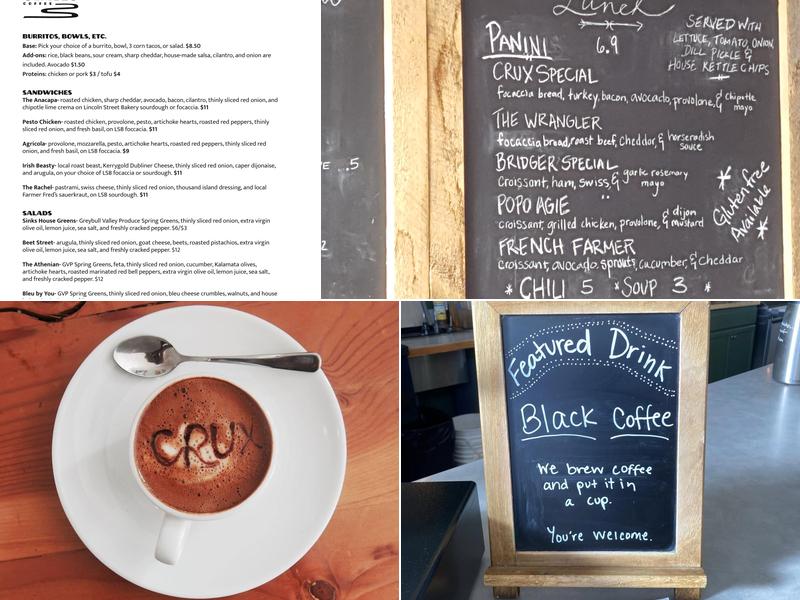 COFFEE
BURRITOS, BOWLS, ETC.
Base: Pick your choice of a burrito, bowl, 3 corn tacos, or salad. $8.50
Add-ons: rice, black beans, sour cream, sharp cheddar, house-made salsa, cilantro, and onion are
included. Avocado $1.50
Proteins: chicken or pork $3 / tofu $4
SANDWICHES
The Anacapa- roasted chicken, sharp cheddar, avocado, bacon, cilantro, thinly sliced red onion, and
chipotle lime crema on Lincoln Street Bakery sourdough or focaccia. $11
Pesto Chicken- roasted chicken, provolone, pesto, artichoke hearts, roasted red peppers, thinly
sliced red onion, and fresh basil, on LSB foccacia. $11
Agricola- provolone, mozzarella, pesto, artichoke hearts, roasted red peppers, thinly sliced red
onion, and fresh basil, on LSB foccacia. $9
Irish Beasty- local roast beast, Kerrygold Dubliner Cheese, thinly sliced red onion, caper dijonaise,
and arugula, on your choice of LSB focaccia or sourdough. $11
The Rachel- pastrami, swiss cheese, thinly sliced red onion, thousand island dressing, and local
Farmer Fred's sauerkraut, on LSB sourdough. $11
SALADS
Sinks House Greens- Greybull Valley Produce Spring Greens, thinly sliced red onion, extra virgin
olive oil, lemon juice, sea salt, and freshly cracked pepper. $6/$3
Beet Street- arugula, thinly sliced red onion, goat cheese, beets, roasted pistachios, extra virgin
olive oil, lemon juice, sea salt, and freshly cracked pepper. $12
The Athenian- GVP Spring Greens, feta, thinly sliced red onion, cucumber, Kalamata olives,
artichoke hearts, roasted marinated red bell peppers, extra virgin olive oil, lemon juice, sea salt,
and freshly cracked pepper. $12
Bleu by You- GVP Spring Greens, thinly sliced red onion, bleu cheese crumbles, walnuts, and house
.5
Lunch
PANINI 6.9
SERVED WITH
LETTUCE, TOMATO, ONION,
DILL PICKLE &
HOUSE KETTLE CHIPS
CRUX SPECIAL
focaccia bread, turkey, bacon, avocado, provolone, & chipotle mayo
THE WRANGLER
focaccia bread, roast beef, cheddar, & horseradish sauce
BRIDGER SPECIAL
Croissant, ham, swiss, & garlic rosemary mayo
POPO AGIE
croissant, grilled chicken, provolone, & dijon mustard
FRENCH FARMER
croissant, avocado, sprouts, cucumber, & cheddar
* CHILI 5 * SOUP 3 *
* Gluten free
Available *
CRUX
Featured Drink
Black Coffee
We brew coffee
and put it in
a cup.
You're welcome.